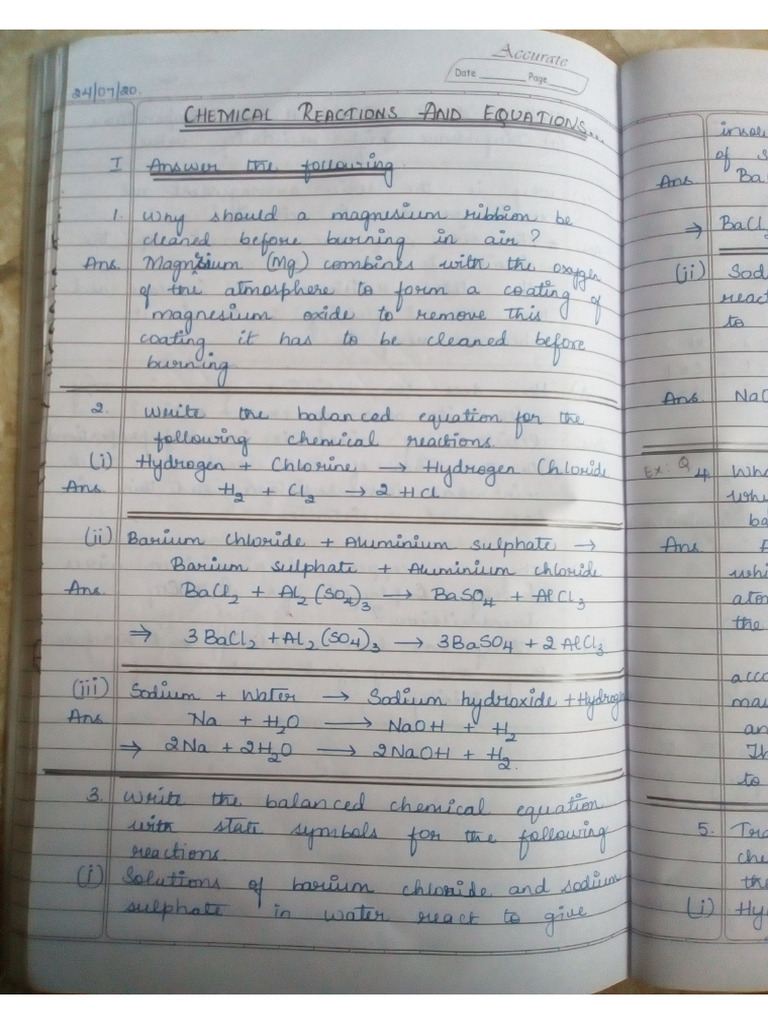 Accurate
Date Page
24/07/20.
CHEMICAL REACTIONS AND EQUATIONS...
I Answer the following.
1. Why should a magnesium ribbion be
cleaned before burning in air?
Ans. Magnesium (Mg) combines with the oxygen
of the atmosphere to form a coating of
magnesium oxide to remove this
coating it has to be cleaned before
burning.
2. Write the balanced equation for the
following chemical reactions.
(i) Hydrogen + Chlorine → Hydrogen Chloride
Ans. H₂ + Cl₂ → 2 HCl
(ii) Barium chloride + Aluminium sulphate →
Barium sulphate + Aluminium chloride
Ans BaCl₂ + Al₂(SO₄)₃ → BaSO₄ + AlCl₃
⇒ 3BaCl₂ + Al₂(SO₄)₃ → 3BaSO₄ + 2AlCl₃.
(iii) Sodium + Water → Sodium hydroxide + Hydrogen
Ans Na + H₂O → NaOH + H₂
⇒ 2Na + 2H₂O → 2NaOH + H₂.
3. Write the balanced chemical equation
with state symbols for the following
reactions.
(i) Solutions of barium chloride and sodium
sulphate in water react to give
of
Ans Ba
⇒ BaCl₂
(ii) Sod
react
to
Ans. Na
Ex: Q 4. Wh
whi
ba
Ans
whi
ato
the
acco
ma
an
Th
to
5. Tra
che
the
(i) Hy